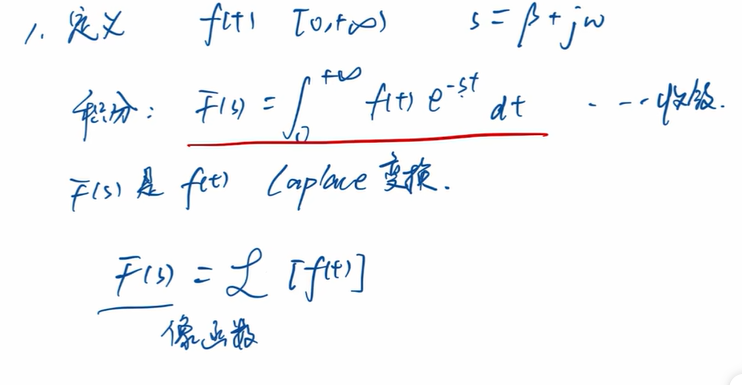 1. 定义 f(t) [0,+∞) s = β + jω
积分: F(s) = ∫₀^{+∞} f(t) e^{-st} dt ---收敛.
F(s) 是 f(t) Laplace 变换.
F(s) = ℒ [f(t)]
像函数